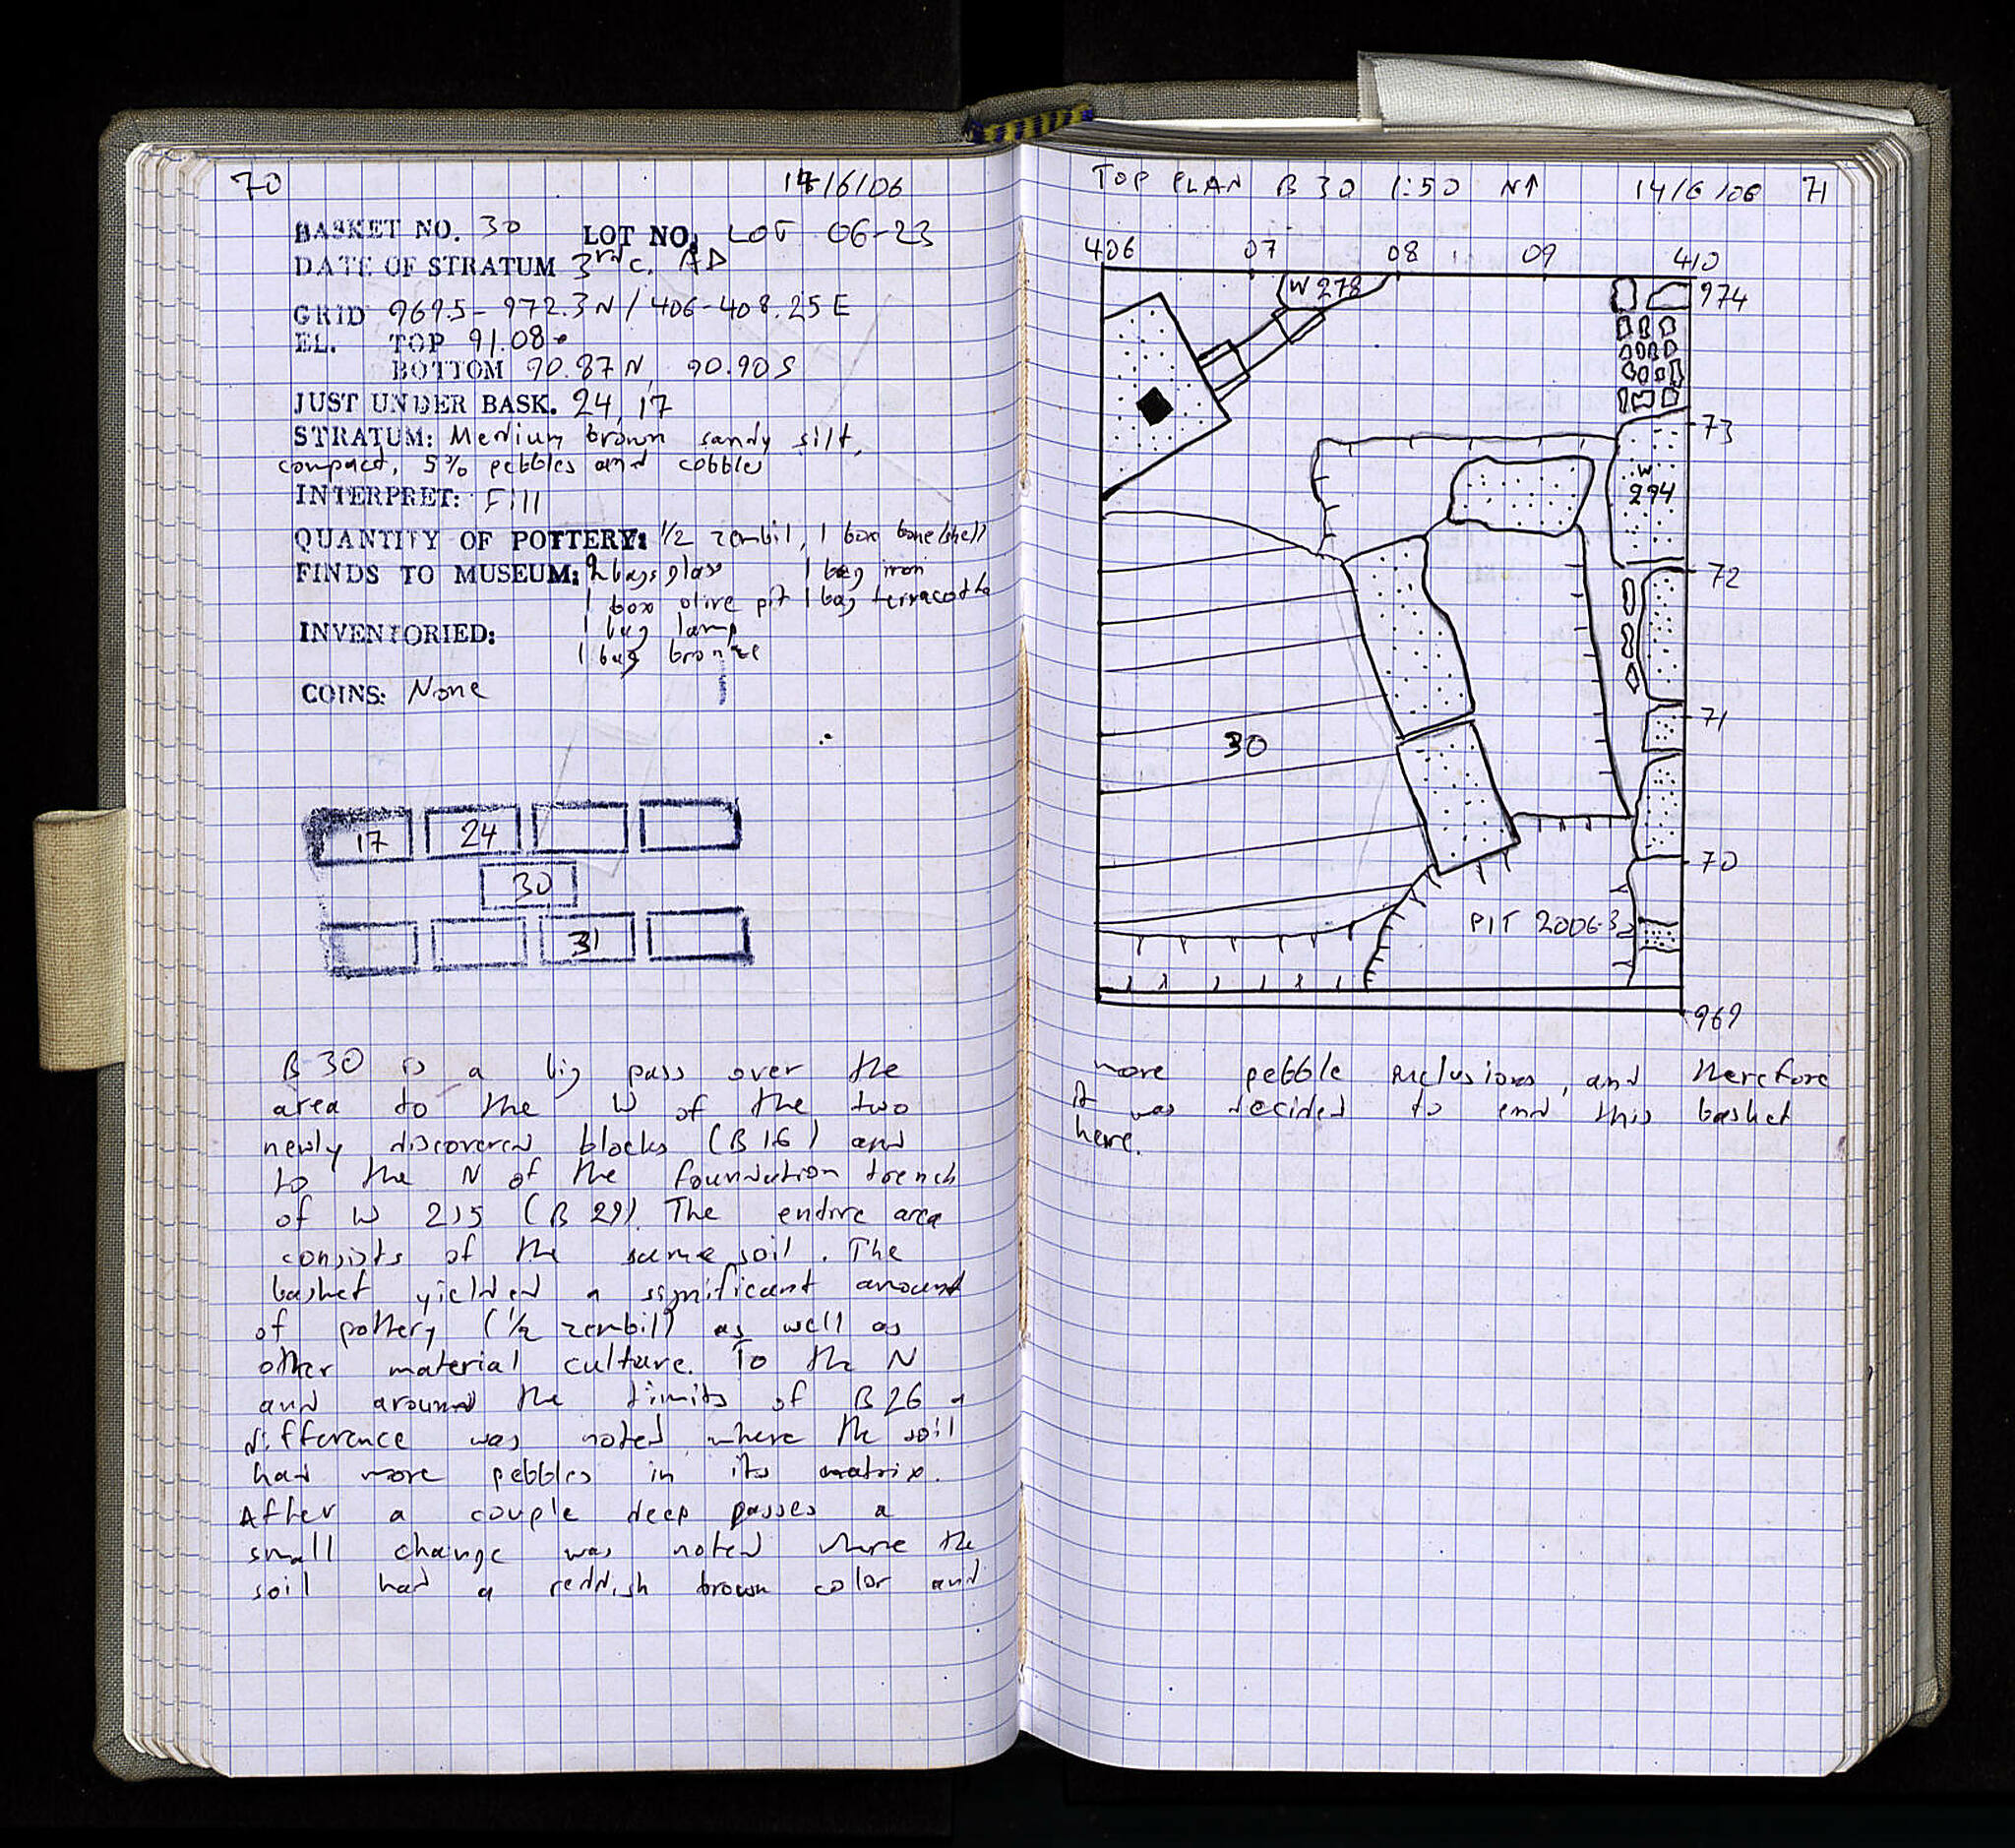 70 14/6/06
BASKET NO. 30 LOT NO. LOT 06-23
DATE OF STRATUM 3rd c. AD
GRID 969.5-972.3N/406-408.25E
EL. TOP 91.08
BOTTOM 90.87N, 90.90S
JUST UNDER BASK. 24, 17
STRATUM: Medium brown sandy silt,
compact, 5% pebbles and cobbles
INTERPRET: Fill
QUANTITY OF POTTERY: 1/2 zembil, 1 box bone/shell
FINDS TO MUSEUM: 2 bags glass 1 bag iron
1 box olive pit 1 bag terracotta
INVENTORIED: 1 bag lamp
1 bag bronze
COINS: None
17 24
30
31
B 30 is a big pass over the
area to the W of the two
newly discovered blocks (B 16) and
to the N of the foundation trench
of W 215 (B 29). The entire area
consists of the same soil. The
basket yielded a significant amount
of pottery (1/2 zembil) as well as
other material culture. To the N
and around the limits of B 26 a
difference was noted where the soil
had more pebbles in its matrix.
After a couple deep passes a
small change was noted where the
soil had a reddish brown color and
TOP PLAN B 30 1:50 N↑ 14/6/06 71
406 07 08 09 410
W 278
974
73
W
294
72
71
30
70
PIT 2006-3
969
more pebble inclusions, and therefore
it was decided to end this basket
here.